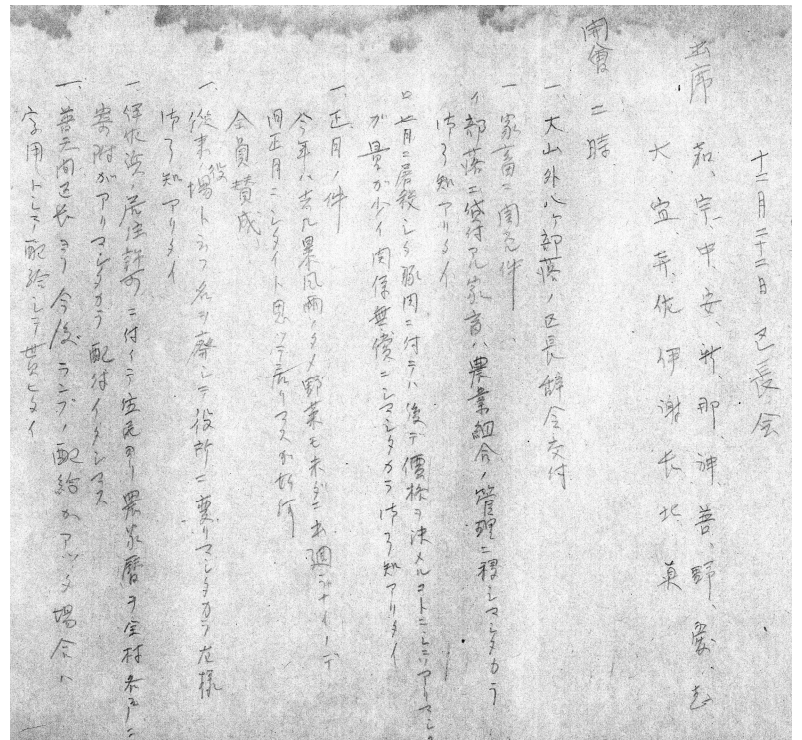 十二月二十二日 区長会
出席 茹、宗、中、安、新、那、神、善、野、愛、志
大、宜、弄、佐、伊、謝、長、北、眞
開會 二時
一、大山外八ヶ部落ノ区長辞令交付
一 家畜ニ関スル件
イ 部落ニ貸付アル家畜ハ農業組合ノ管理ニ移シマシタカラ
御了知アリタイ
ロ 七月ニ屠殺シタ豚肉ニ付テハ後デ價格ヲ決メルコトニシテアリマシタ
ガ量ガ少イ関係無償ニシマシタカラ御了知アリタイ
一、正月ノ件
今年ハ去ル暴風雨ノタメ野菜モ未ダニ出廻ラナイノデ
旧正月ニシタイト思ッテ居リマスガ如何
全員賛成
一、従来役場トイフ名ヲ廃シテ役所ニ変リマシタカラ左様
御了知アリタイ
一 伊佐浜ノ居住許可ニ付イテ 農家暦ヲ全村各戸ニ
寄附ガアリマシタカラ配付イタシマス
一、普天間区長ヨリ今後ランプノ配給ガアッタ場合ハ
字用トシテ配給シテ貰ヒタイ